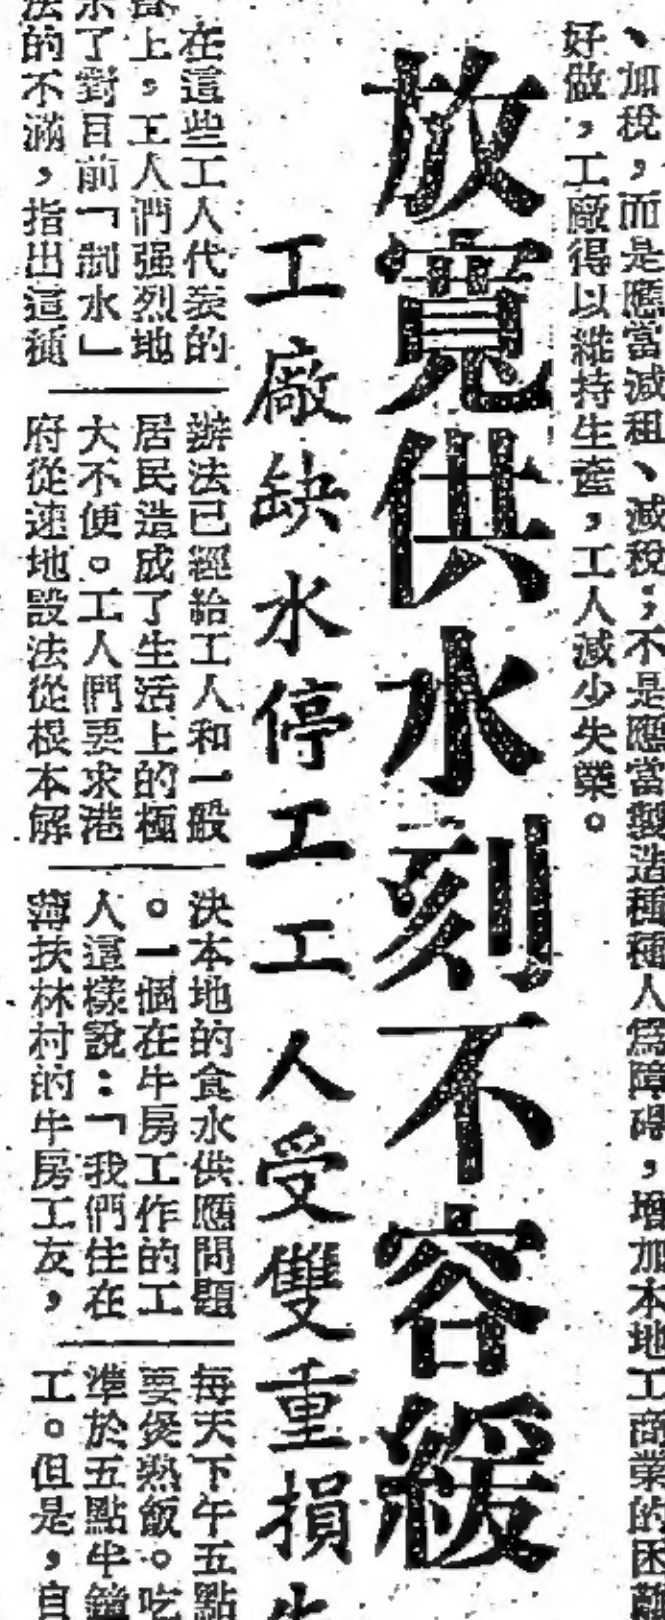 、加稅，而是應當減租、減稅；不是應當製造種種人爲障碍，增加本地工商業的困難
好做，工廠得以維持生產，工人減少失業。
放寬供水刻不容緩
工廠缺水停工工人受雙重損失
在這些工人代表的
會上，工人們强烈地
示了對目前「制水」
法的不滿，指出這種
辦法已經給工人和一般
居民造成了生活上的極
大不便。工人們要求港
府從速地設法從根本解
決本地的食水供應問題
。一個在牛房工作的工
人這樣說：「我們住在
薄扶林村的牛房工友，
每天下午五點
要煲熟飯。吃
準於五點半鐘
工。但是，自